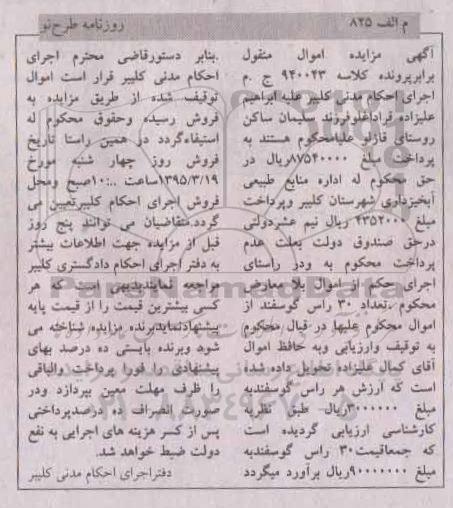 م الف ۸۲۵
روزنامه طرح‌نو
آگهی مزایده اموال منقول
برابرپرونده کلاسه ۹۴۰۰۲۳ ج .م
اجرای احکام مدنی کلیبر علیه ابراهیم
علیزاده قراداغلوفرزند سلیمان ساکن
روستای قازلو علیامحکوم هستند به
پرداخت مبلغ ۸۷۵۴۰۰۰۰ریال در
حق محکوم له اداره منابع طبیعی
آبخیزداری شهرستان کلیبر وپرداخت
مبلغ ۴۳۵۲۰۰۰ ریال نیم عشردولتی
درحق صندوق دولت بعلت عدم
پرداخت محکوم به ودر راستای
اجرای حکم از اموال بلا معارض
محکوم ،تعداد ۳۰ راس گوسفند از
اموال محکوم علیها در قبال محکوم
به توقیف وارزیابی وبه حافظ اموال
آقای کمال علیزاده تحویل داده شده
است که ارزش هر راس گوسفندبه
مبلغ ۳۰۰۰۰۰۰ریال طبق نظریه
کارشناسی ارزیابی گردیده است
که جمعاقیمت۳۰ راس گوسفندبه
مبلغ ۹۰۰۰۰۰۰۰ریال برآورد میگردد
.بنابر دستورقاضی محترم اجرای
احکام مدنی کلیبر قرار است اموال
توقیف شده از طریق مزایده به
فروش رسیده وحقوق محکوم له
استیفاءگردد در همین راستا تاریخ
فروش روز چهار شنبه مورخ
۱۳۹۵/۳/۱۹ساعت ..:۱۰صبح ومحل
فروش اجرای احکام کلیبرتعیین می
گردد.متقاضیان می توانند پنج روز
قبل از مزایده جهت اطلاعات بیشتر
به دفتر اجرای احکام دادگستری کلیبر
مراجعه نمایندبدیهی است که هر
کسی بیشترین قیمت را از قیمت پایه
پیشنهادنمایدبرنده مزایده شناخته می
شود وبرنده بایستی ده درصد بهای
پیشنهادی را فورا پرداخت والباقی
را ظرف مهلت معین بپردازد ودر
صورت انصراف ده درصدپرداختی
پس از کسر هزینه های اجرایی به نفع
دولت ضبط خواهد شد.
دفتراجرای احکام مدنی کلیبر
ParsNamadData